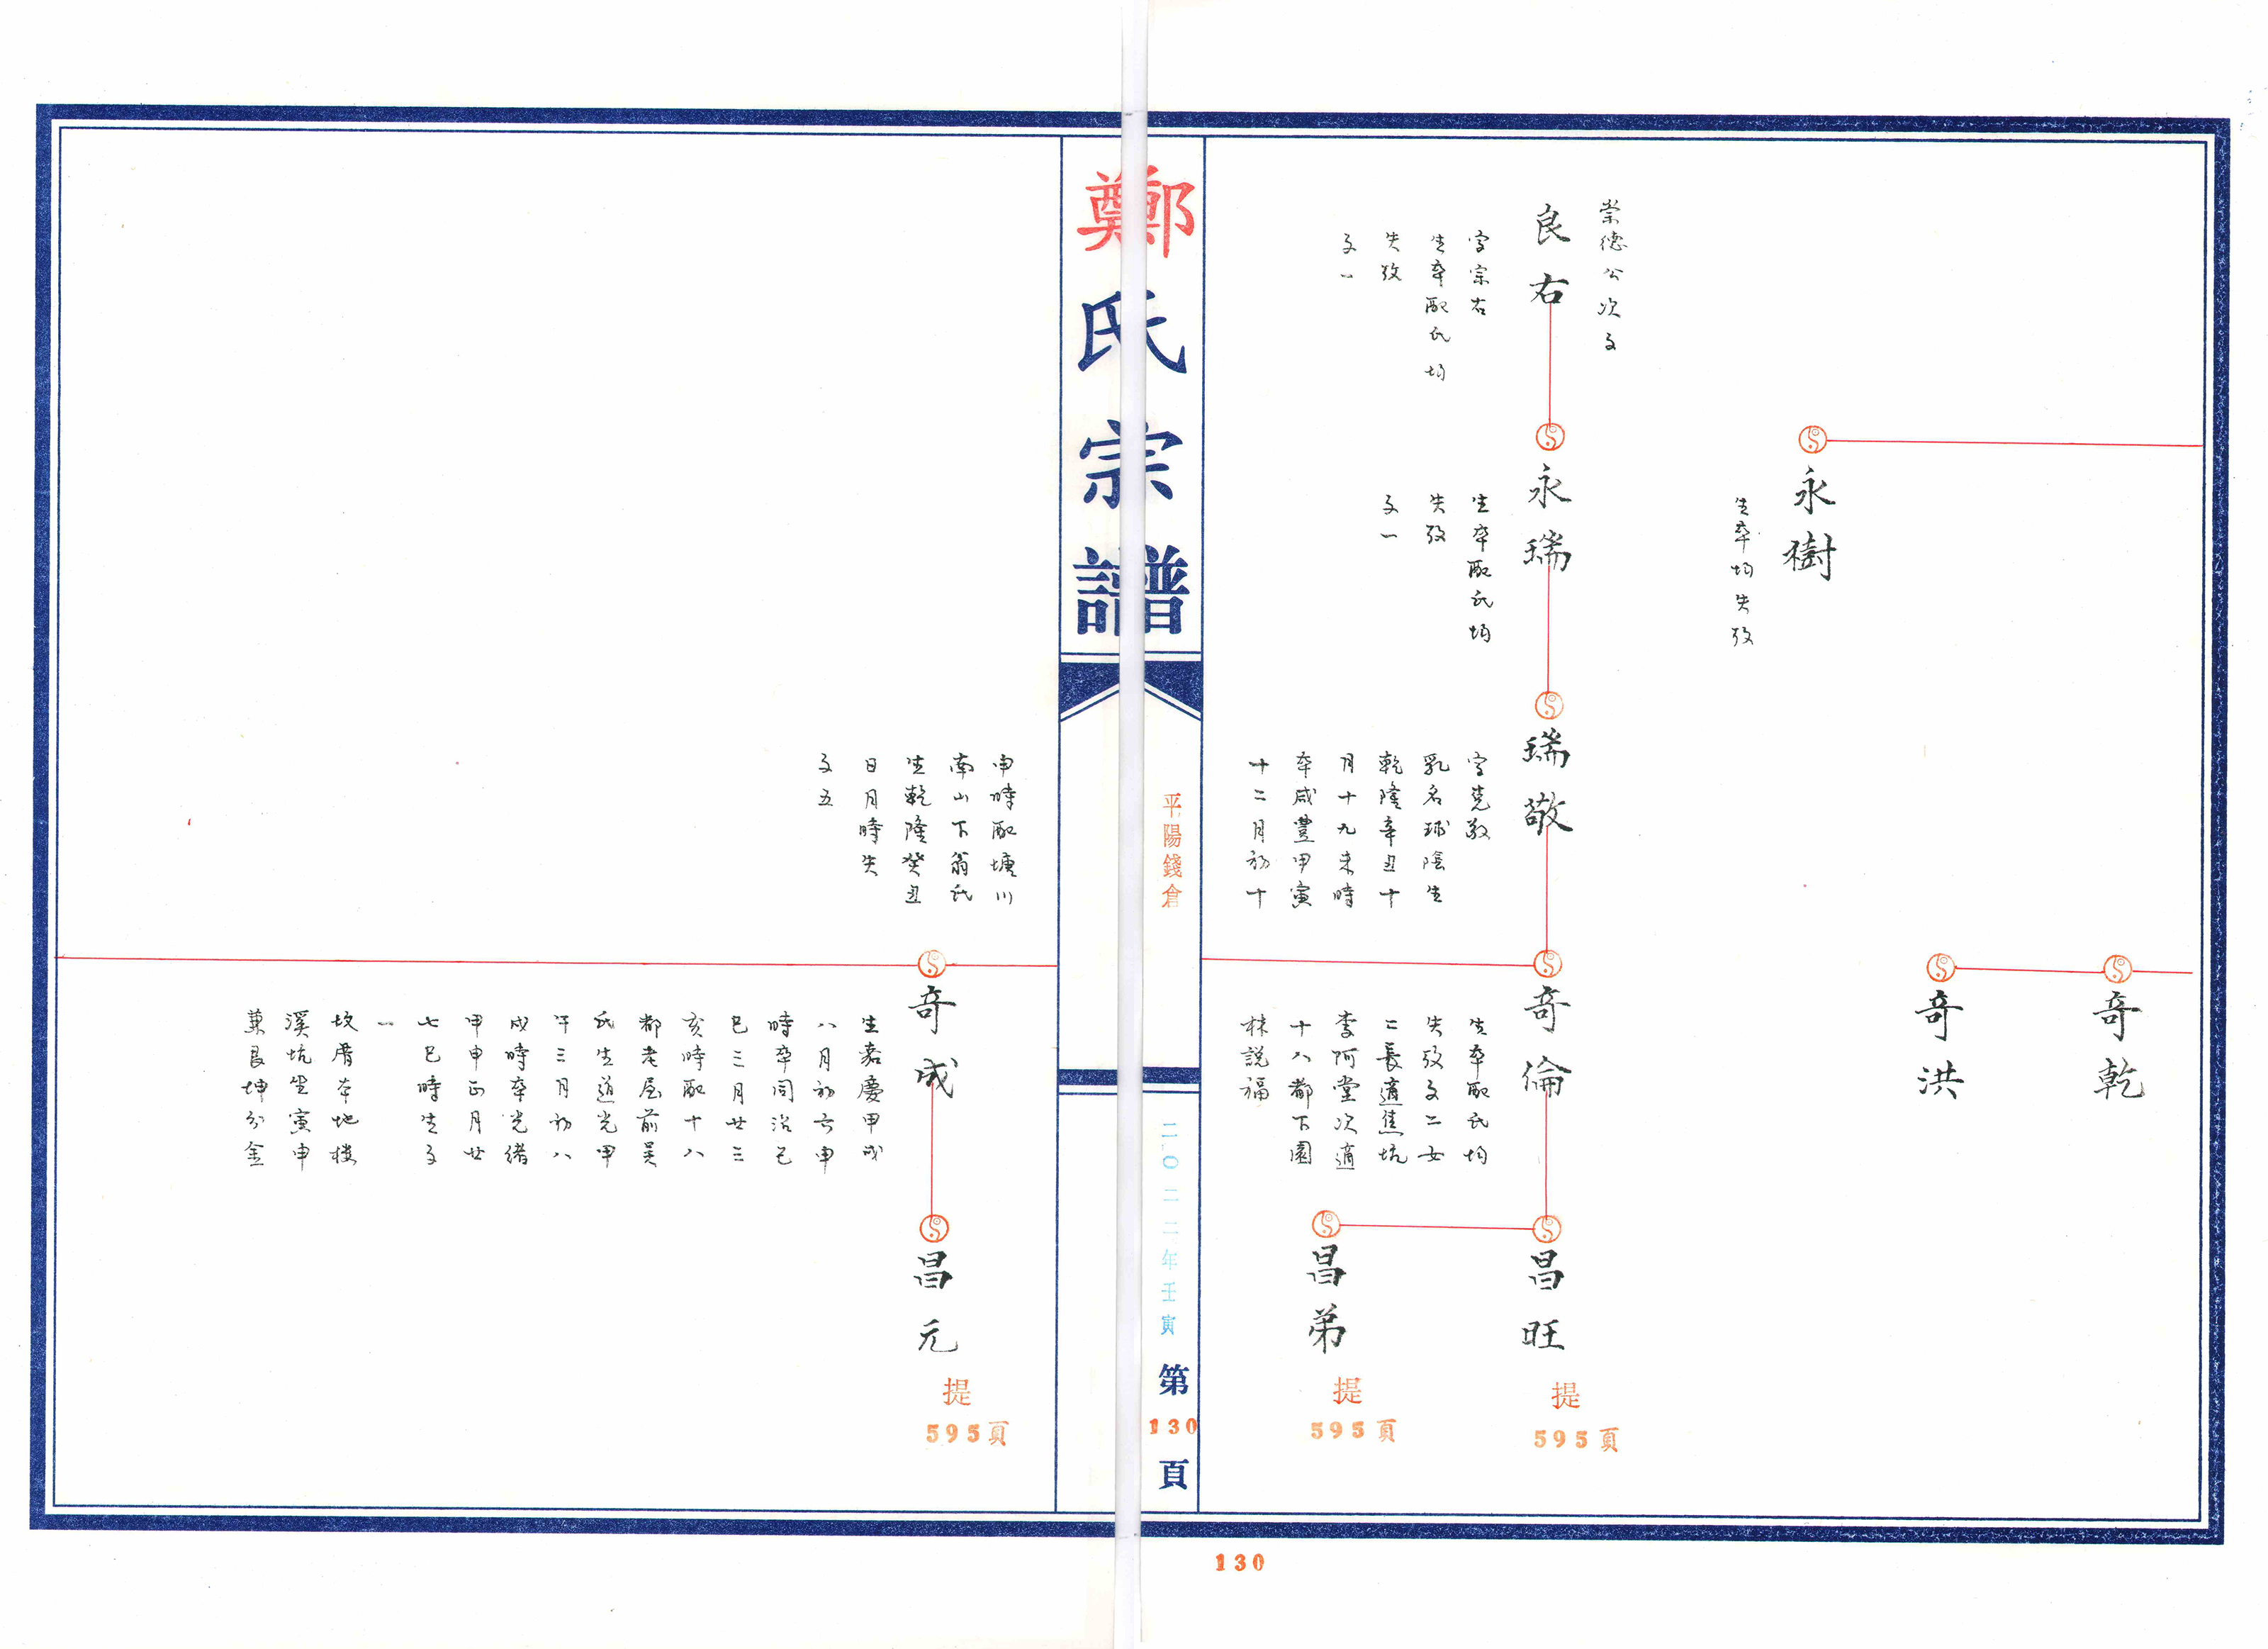 奇乾
奇洪
永樹
生卒均失攷
崇德公次子
良右
字宗右
生卒配氏均
失攷
子一
永瑞
生卒配氏均
失攷
子一
瑞敬
字堯敬
乳名球陰生
乾隆辛丑十
月十九未時
卒咸豐甲寅
十二月初十
奇倫
生卒配氏均
失攷子二女
二長適焦坑
李阿堂次適
十八都下園
林說福
昌旺
提
595頁
昌弟
提
595頁
鄭氏宗譜
平陽錢倉
二〇二二年壬寅
第130頁
申時配塘川
南山下翁氏
生乾隆癸丑
日月時失
子五
奇成
生嘉慶甲戌
八月初六申
時卒同治己
巳三月廿三
亥時配十八
都老屋前吴
氏生道光甲
午三月初八
戌時卒光緒
甲申正月廿
七巳時生子
一
坟厝本地楼
溪坑坐寅申
兼艮坤分金
昌元
提
595頁
130